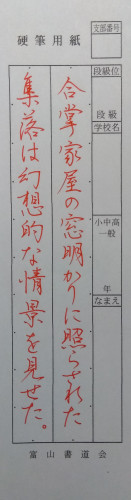 硬筆用紙
支部番号
段級位
段級
学校名
小中高
一般
年
なまえ
合掌家屋の窓明かりに照らされた
集落は幻想的な情景を見せた。
富山書道会